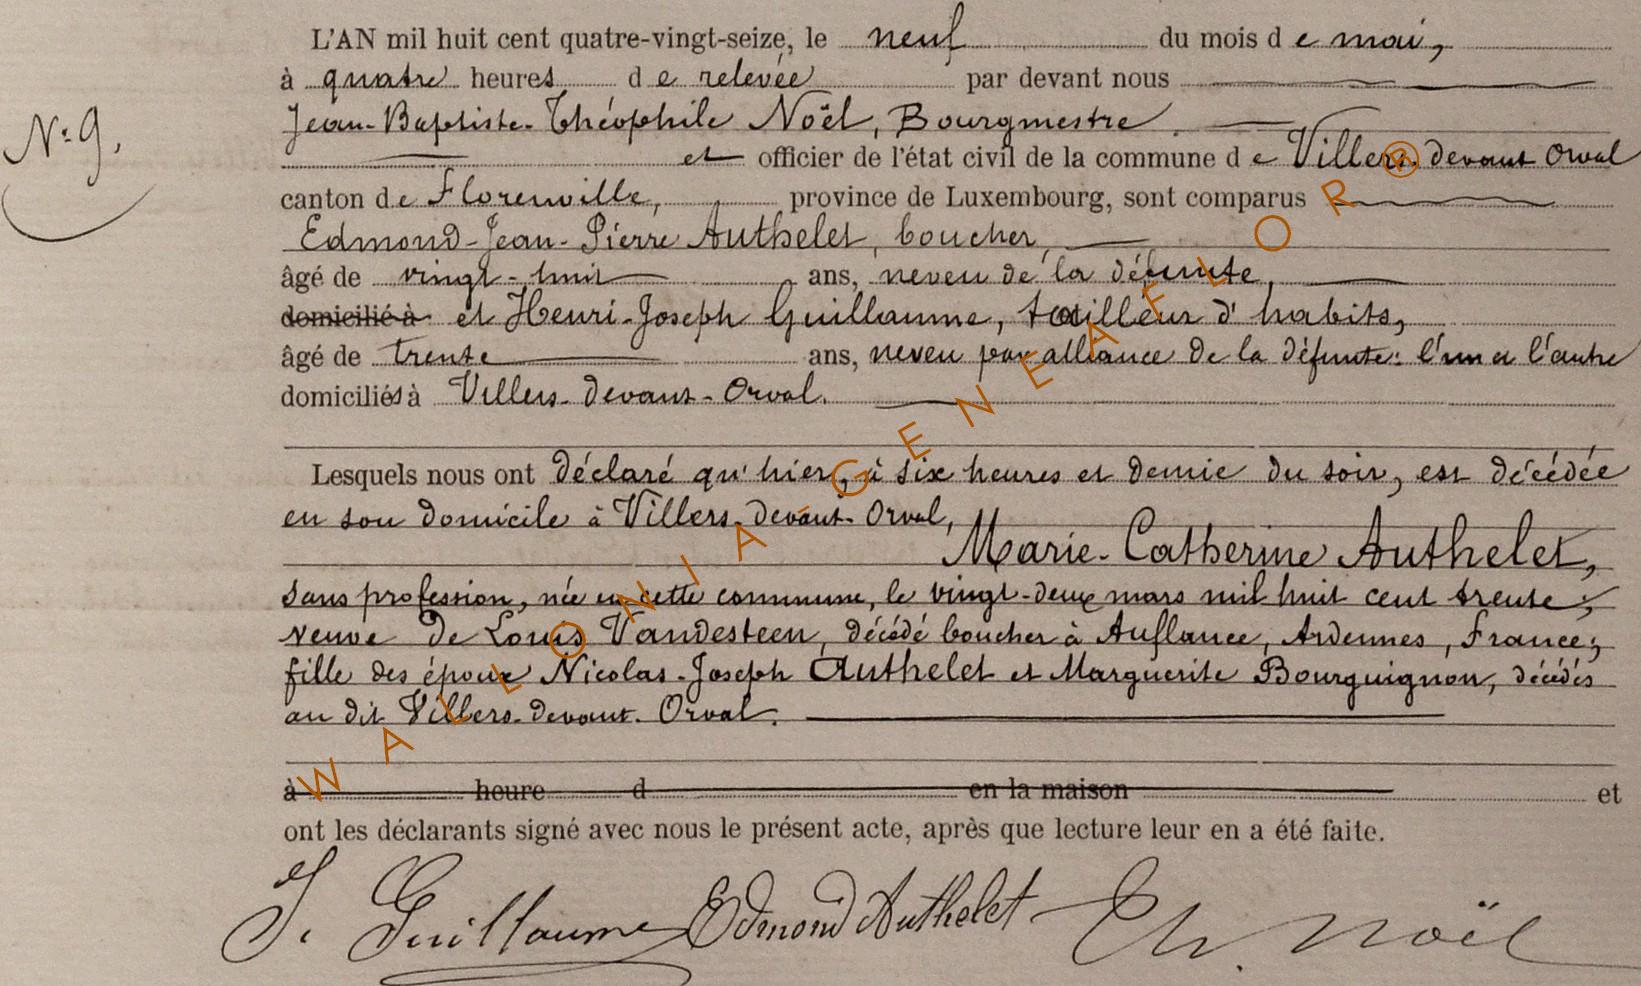 L'AN mil huit cent quatre-vingt-seize, le neuf du mois de mai,
à quatre heures de relevée par devant nous
N° 9. Jean-Baptiste-Théophile Noël, Bourgmestre
et officier de l'état civil de la commune de Villers devant Orval
canton de Florenville, province de Luxembourg, sont comparus
Edmond-Jean-Pierre Authelet, boucher,
âgé de vingt-huit ans, neveu de la défunte,
domicilié à et Henri-Joseph Guillaume, tailleur d'habits,
âgé de trente ans, neveu par alliance de la défunte: l'un et l'autre
domiciliés à Villers-devant-Orval.
Lesquels nous ont déclaré qu'hier, à six heures et demie du soir, est décédée
en son domicile à Villers-devant-Orval,
Marie-Catherine Authelet,
sans profession, née en cette commune, le vingt-deux mars mil huit cent trente,
veuve de Louis Vandesteen, décédé boucher à Auflance, Ardennes, France;
fille des époux Nicolas-Joseph Authelet et Marguerite Bourguignon, décédés
au dit Villers-devant-Orval.
à heure d en la maison et
ont les déclarants signé avec nous le présent acte, après que lecture leur en a été faite.
J. Guillaume Edmond Authelet Th. Noël
WALLONIA GENEAFLOR®